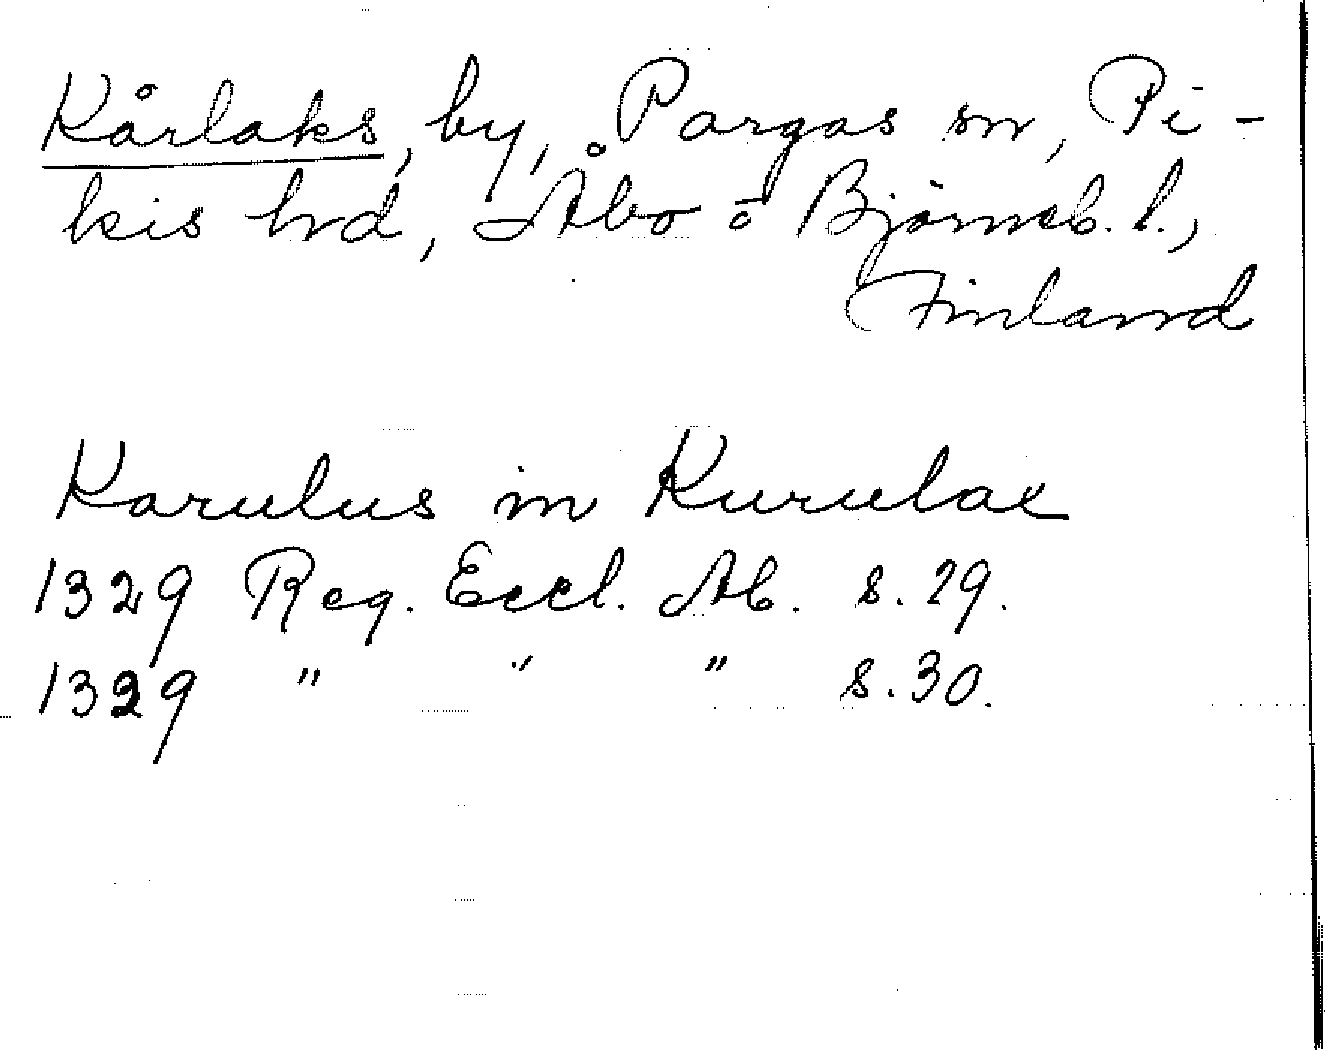 Kårlaks, by, Pargas sn, Pi-
kis hrd, Åbo o Björneb. l.,
Finland
Karulus in Kurulax
1329 Reg. Eccl. Ab. s. 29.
1329 " " " s. 30.